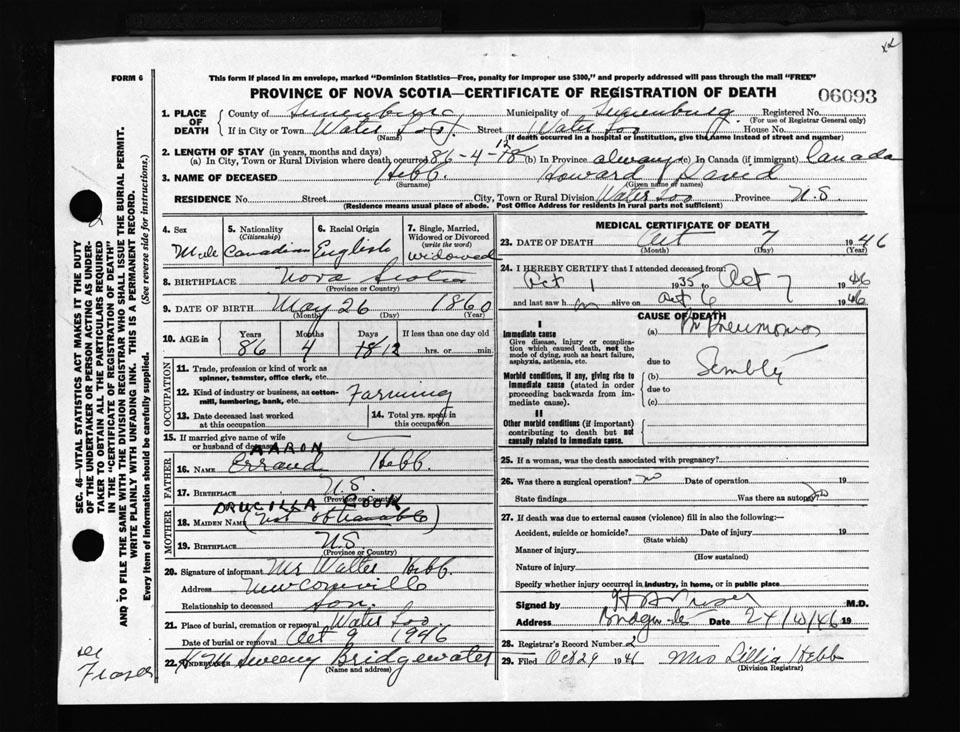 FORM 6
This form if placed in an envelope, marked "Dominion Statistics—Free, penalty for improper use $300," and properly addressed will pass through the mail "FREE"
PROVINCE OF NOVA SCOTIA—CERTIFICATE OF REGISTRATION OF DEATH
06093
1. PLACE OF DEATH County of Lunenburg Municipality of Lunenburg. Registered No.
(For use of Registrar General only)
If in City or Town Waterloo Street Waterloo House No.
(Name) (If death occurred in a hospital or institution, give the name instead of street and number)
2. LENGTH OF STAY (in years, months and days)
(a) In City, Town or Rural Division where death occurred 86-4-18 12 (b) In Province always (c) In Canada (if immigrant) Canada
3. NAME OF DECEASED Hebb. Howard David
(Surname) (Given name or names)
RESIDENCE No. Street City, Town or Rural Division Waterloo Province N.S.
(Residence means usual place of abode. Post Office Address for residents in rural parts not sufficient)
4. Sex 5. Nationality (Citizenship) 6. Racial Origin 7. Single, Married, Widowed or Divorced (write the word)
Male Canadian English widowed
8. BIRTHPLACE Nova Scotia
(Province or Country)
9. DATE OF BIRTH May 26 1860
(Month) (Day) (Year)
10. AGE in Years Months Days If less than one day old
86 4 18 12 hrs. or min.
OCCUPATION
11. Trade, profession or kind of work as spinner, teamster, office clerk, etc.
12. Kind of industry or business, as cotton-mill, lumbering, bank, etc. Farming
13. Date deceased last worked at this occupation 14. Total yrs. spent in this occupation
15. If married give name of wife or husband of deceased
FATHER
AARON
16. NAME Hebb.
17. BIRTHPLACE N.S.
(Province or Country)
MOTHER
DRUCILLA COOK
18. MAIDEN NAME (Not obtainable)
19. BIRTHPLACE N.S.
(Province or Country)
20. Signature of informant Mr Walter Hebb.
Address Newcomville
Relationship to deceased son.
21. Place of burial, cremation or removal Waterloo
Date of burial or removal Oct 9 1946
22. UNDERTAKER Sweeny Bridgewater
(Name and address)
MEDICAL CERTIFICATE OF DEATH
23. DATE OF DEATH Oct 7 1946
(Month) (Day) (Year)
24. I HEREBY CERTIFY that I attended deceased from:
Oct 1 1935 to Oct 7 1946
and last saw h m alive on Oct 6 1946
CAUSE OF DEATH
I
Immediate cause
Give disease, injury or complication which caused death, not the mode of dying, such as heart failure, asphyxia, asthenia, etc.
(a) Pneumonia
due to
Morbid conditions, if any, giving rise to immediate cause (stated in order proceeding backwards from immediate cause).
(b)
due to
(c)
II
Other morbid conditions (if important) contributing to death but not causally related to immediate cause.
25. If a woman, was the death associated with pregnancy?
26. Was there a surgical operation? no Date of operation 19
State findings Was there an autopsy? no
27. If death was due to external causes (violence) fill in also the following:—
Accident, suicide or homicide? Date of injury 19
(State which)
Manner of injury
(How sustained)
Nature of injury
Specify whether injury occurred in industry, in home, or in public place
Signed by M.D.
Address Date 24/10/46 19
28. Registrar's Record Number 2
29. Filed Oct 29 1946 Mrs Lillia Hebb
(Division Registrar)
SEC. 46—VITAL STATISTICS ACT MAKES IT THE DUTY OF THE UNDERTAKER OR PERSON ACTING AS UNDERTAKER TO OBTAIN ALL THE PARTICULARS REQUIRED IN THE "CERTIFICATE OF REGISTRATION OF DEATH" AND TO FILE THE SAME WITH THE DIVISION REGISTRAR WHO SHALL ISSUE THE BURIAL PERMIT.
WRITE PLAINLY WITH UNFADING INK. THIS IS A PERMANENT RECORD.
Every item of information should be carefully supplied. (See reverse side for instructions.)
see
Fraser